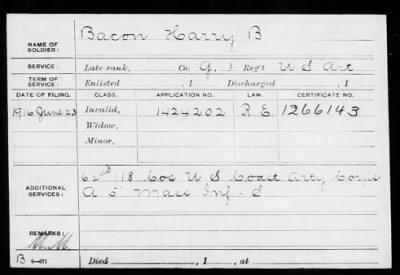 NAME OF SOLDIER: Bacon Harry B
SERVICE: Late rank, Co. G. 1 Reg't U S Art
TERM OF SERVICE: Enlisted , 1 Discharged , 1
DATE OF FILING. CLASS. APPLICATION NO. LAW. CERTIFICATE NO.
1916 June 23 Invalid, 1424202 R. E. 1266143
Widow,
Minor,
ADDITIONAL SERVICES: 118 Cos U S Coast Arty Corps
A 5" Mass Inf - S
REMARKS:
B 6-471 Died , 1 , at